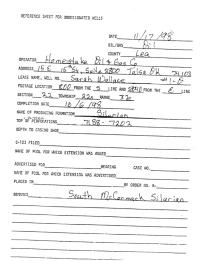 REFERENCE SHEET FOR UNDESIGNATED WELLS
DATE 11/17/98
OIL/GAS Oil
COUNTY Lea
OPERATOR Homestake Oil & Gas Co
ADDRESS 15 E 5th St, Suite 2800 Tulsa OK 74103
LEASE NAME, WELL NO. Sarah Wallace #1-
FOOTAGE LOCATION 800 FROM THE S LINE AND FROM THE E LINE
SECTION 32 TOWNSHIP 22s RANGE
COMPLETION DATE 10/6/98
NAME OF PRODUCING FORMATION Silurian
TOP OF PERFORATIONS 7188-7203
DEPTH TO CASING SHOE
C-123 FILED
NAME OF POOL FOR WHICH EXTENSION WAS ASKED
ADVERTISED FOR HEARING CASE NO.
NAME OF POOL FOR WHICH EXTENSION WAS ADVERTISED
PLACED IN BY ORDER NO. R-
REMARKS South McCormack Silurian